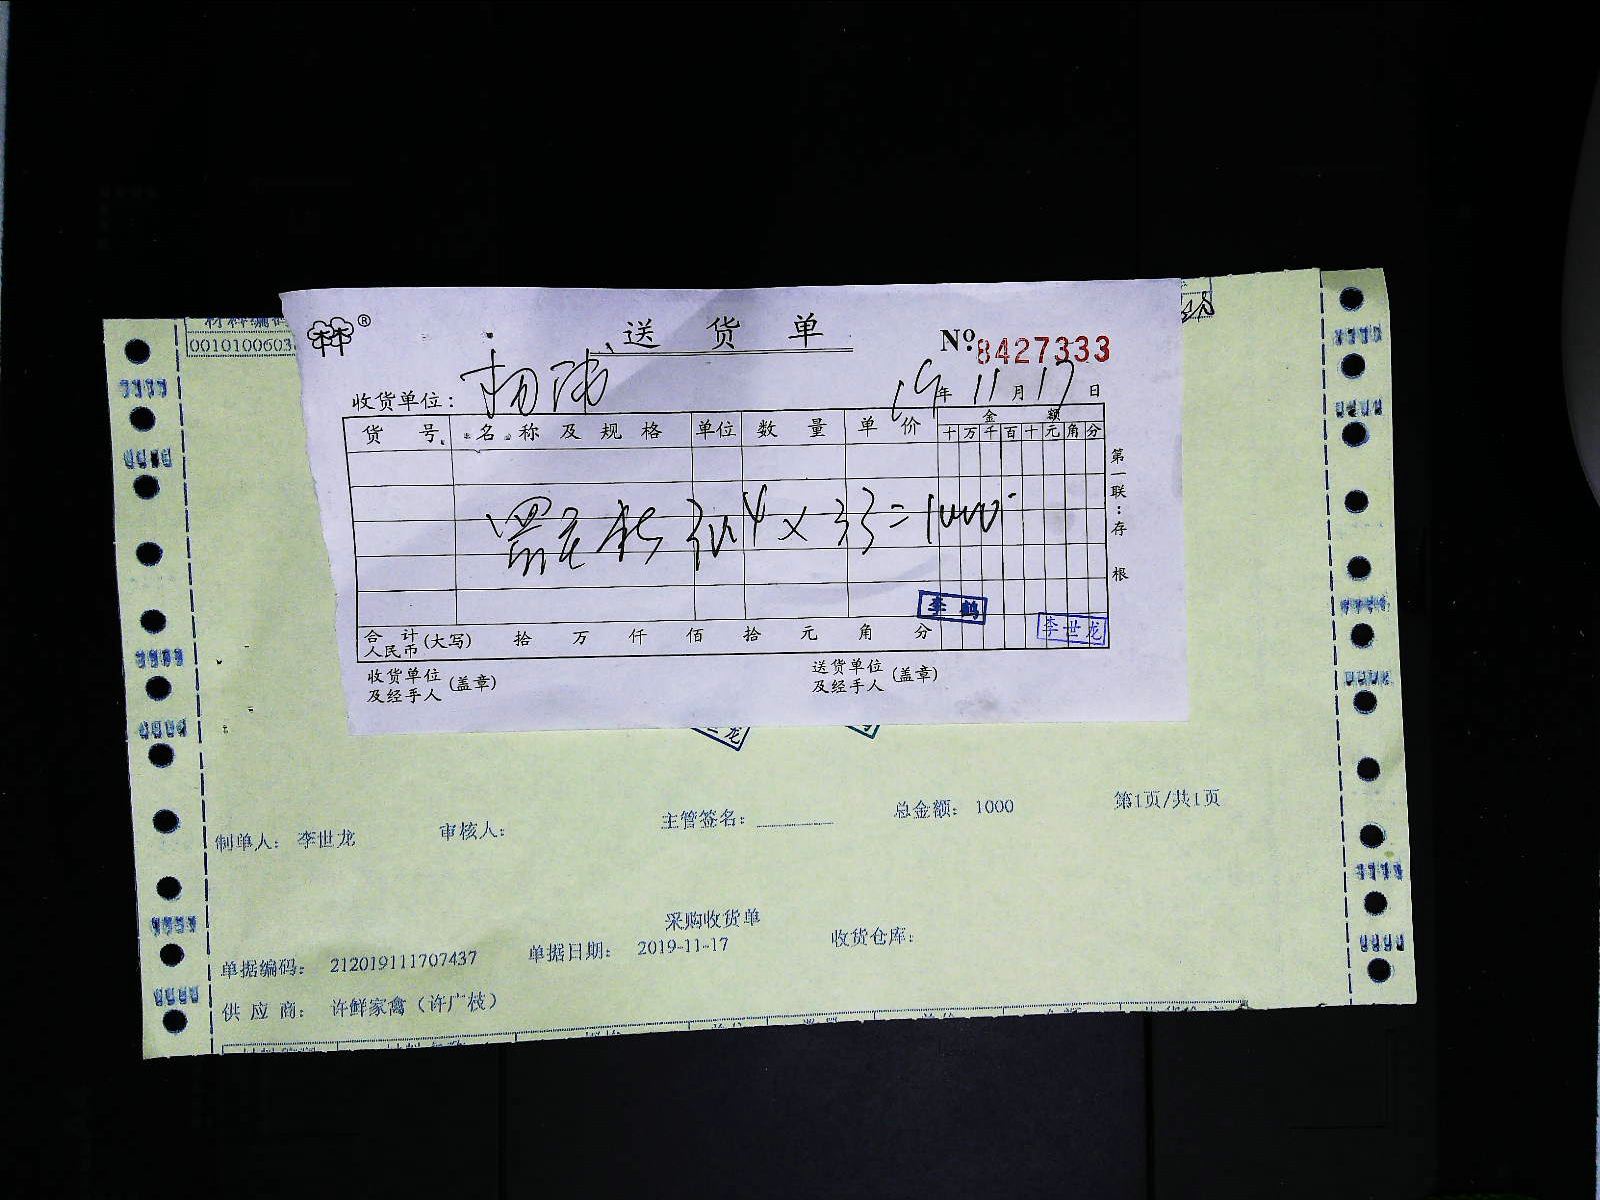 0010100603
®
送货单
№ 8427333
收货单位：
19年11月17日
货号 名称及规格 单位 数量 单价 金额
十万千百十元角分
=1000
第一联：存根
李鹤
李世龙
合计人民币(大写) 拾 万 仟 佰 拾 元 角 分
收货单位及经手人(盖章) 送货单位及经手人(盖章)
制单人： 李世龙 审核人： 主管签名： 总金额： 1000 第1页/共1页
采购收货单
单据编码： 212019111707437 单据日期： 2019-11-17 收货仓库：
供应商： 许鲜家禽（许广枝）